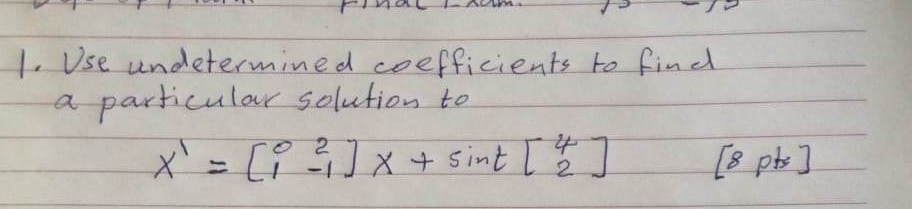 Final Exam.
1. Use undetermined coefficients to find
a particular solution to
x' = [0 2
1 -1] x + sint [4
2] [8 pts]